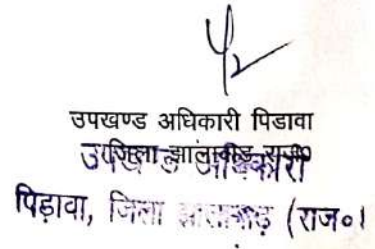 उपखण्ड अधिकारी पिडावा
जिला झालावाड़ राज०
उपखण्ड अधिकारी
पिड़ावा, जिला झालावाड़ (राज०)